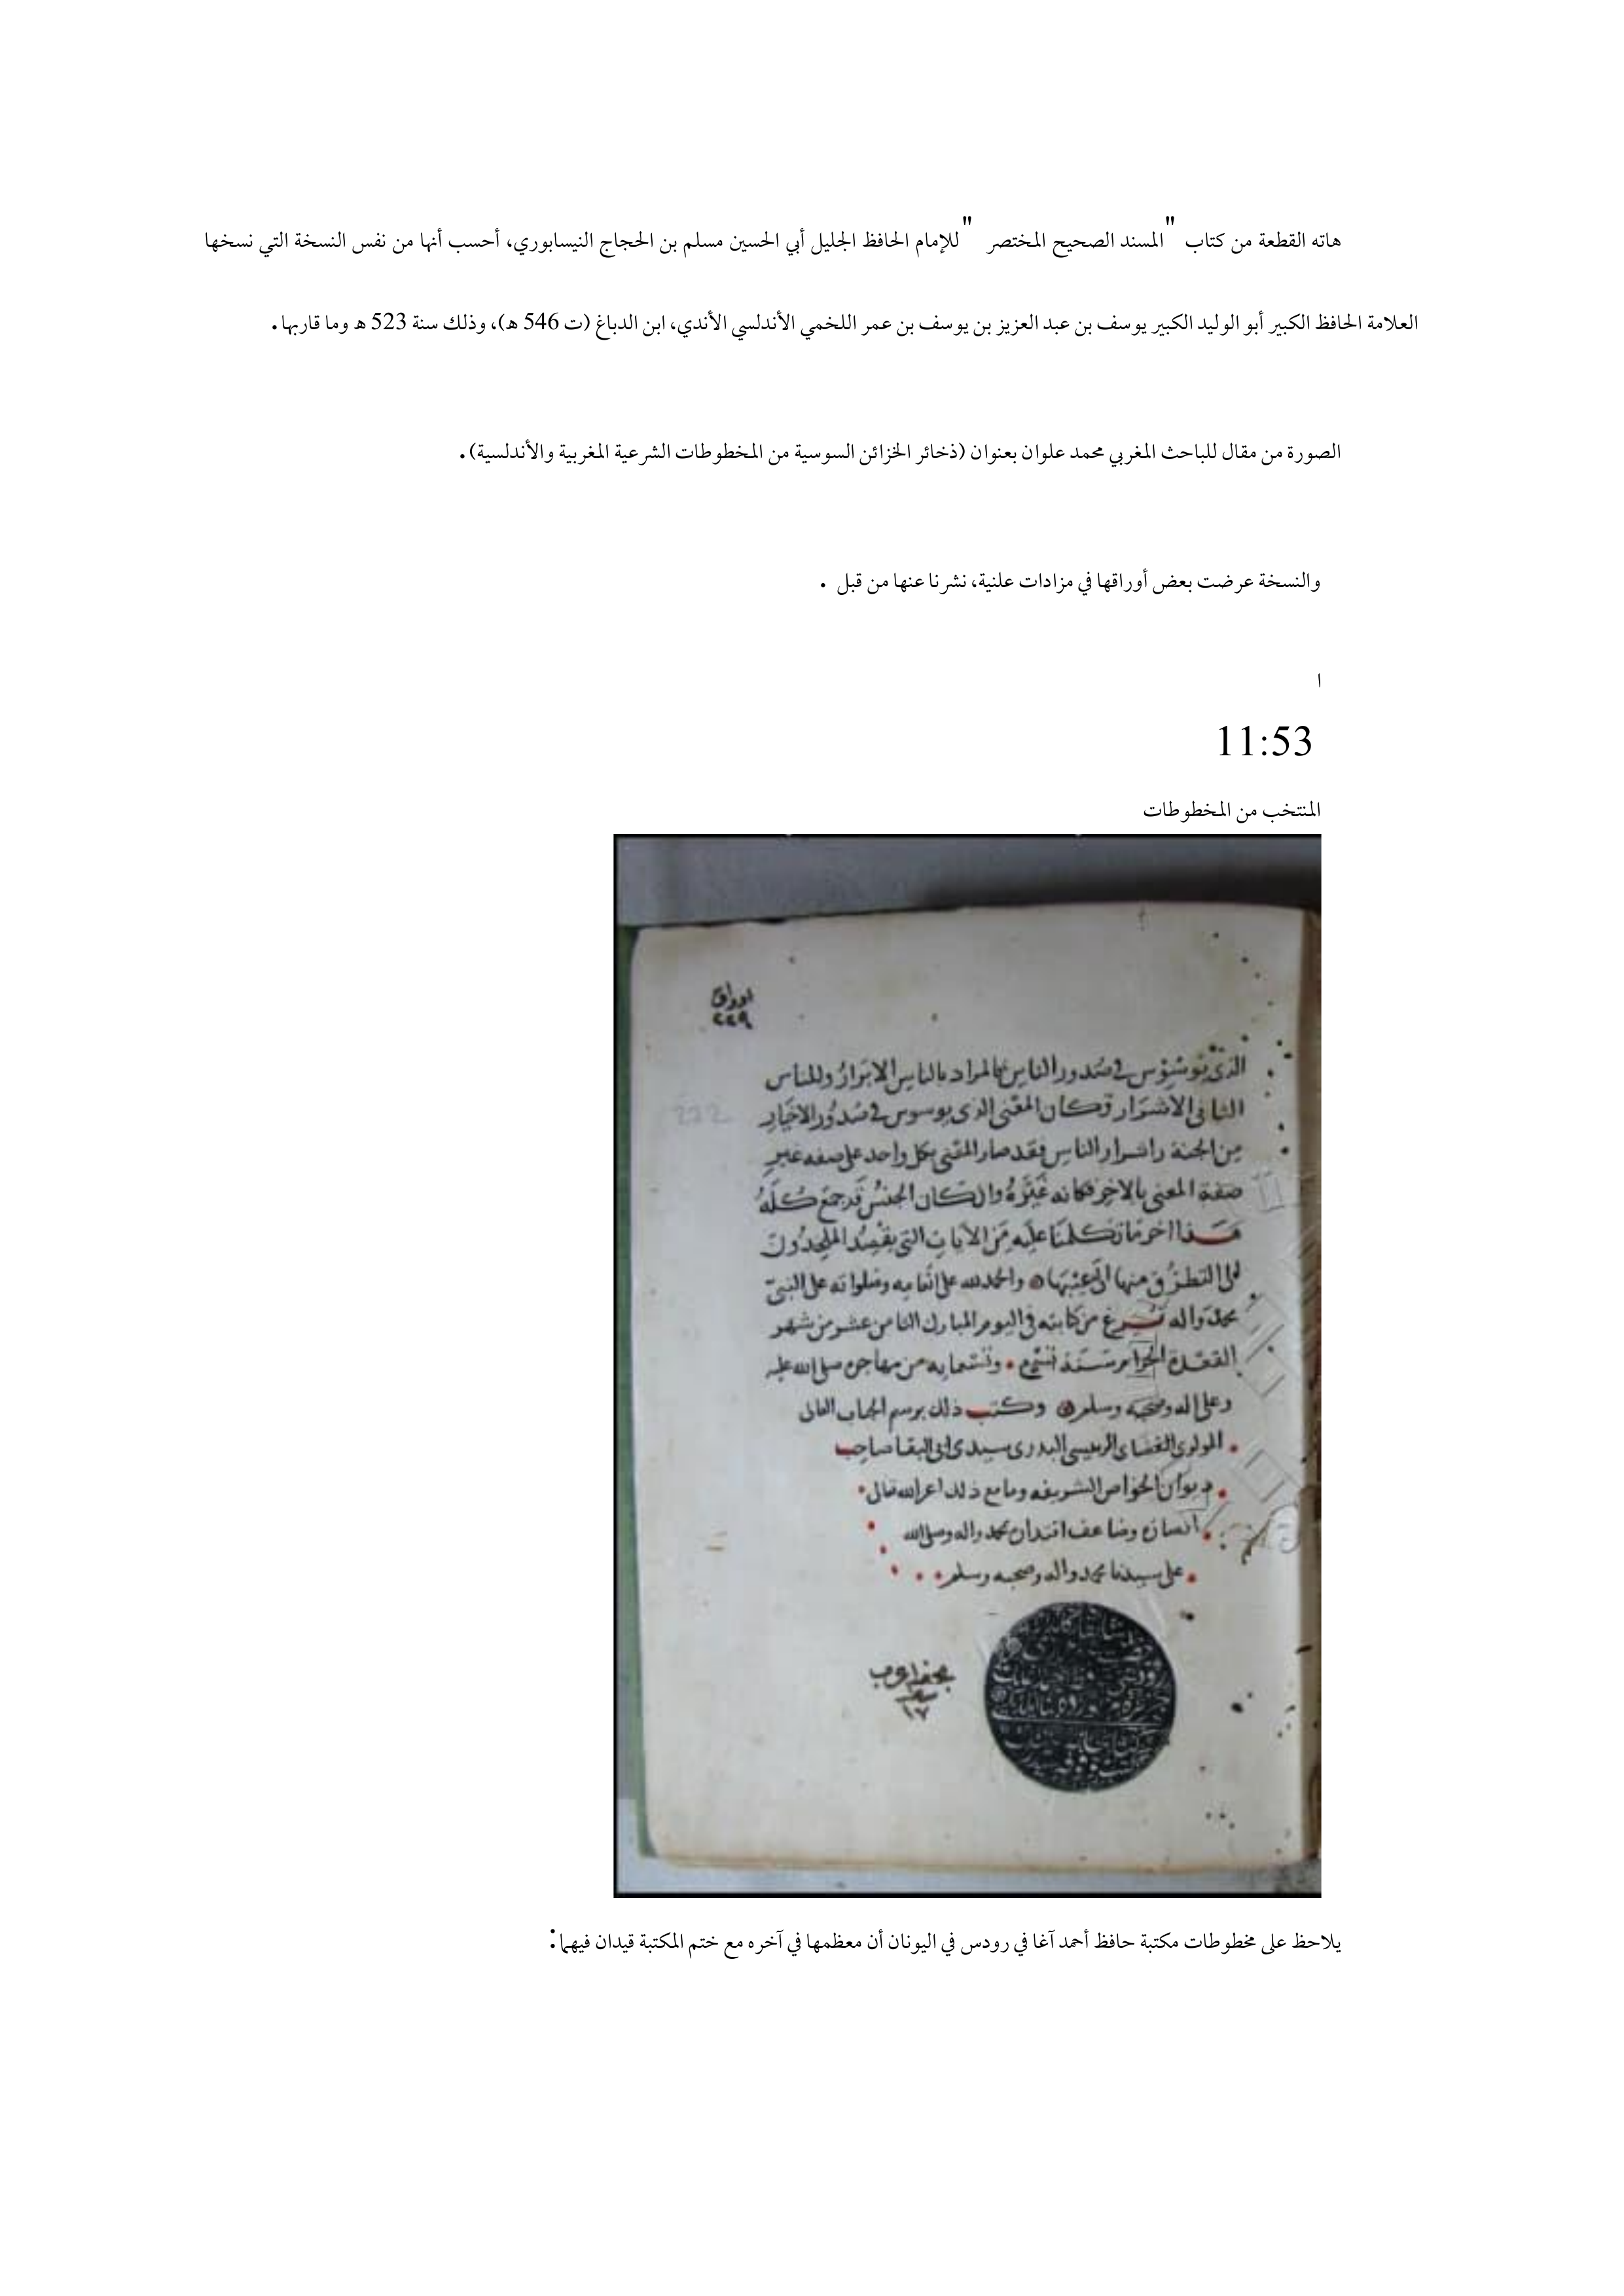 هاته القطعة من كتاب "المسند الصحيح المختصر "للإمام الحافظ الجليل أبي الحسين مسلم بن الحجاج النيسابوري، أحسب أنها من نفس النسخة التي نسخها
العلامة الحافظ الكبير أبو الوليد الكبير يوسف بن عبد العزيز بن يوسف بن عمر اللخمي الأندلسي الأندي، ابن الدباغ (ت 546 هـ)، وذلك سنة 523 هـ وما قاربها.
الصورة من مقال للباحث المغربي محمد علوان بعنوان (ذخائر الخزائن السوسية من المخطوطات الشرعية المغربية والأندلسية).
والنسخة عرضت بعض أوراقها في مزادات علنية، نشرنا عنها من قبل .
ا
11:53
المنتخب من المخطوطات
اوراق
٢٤٩
الذى يوسوس فى صدور الناس فالمراد بالناس الابرار وللناس
الثانى الاشرار وكان المعنى الذى يوسوس فى صدور الاخيار
من الجنة واشرار الناس فقد صار المعنى بكل واحد على صفه غير
صفة المعنى بالاخر فكانه غيره وان كان الجنس قد جمع كله
هذا اخر ما تكلمنا عليه من الايات التى يقصد الملحدون
الى التطرق منها الى عيبها والحمد لله على انعامه وصلواته على النبى
محمد واله فرغ من كتابته فى اليوم المبارك الثامن عشر من شهر
القعدة الحرام سنة وتسعمايه من مهاجره صلى الله عليه
وعلى اله وصحبه وسلم وكتب ذلك برسم الجناب العالى
المولوى القضاى الريسى البدرى سيدى ابى البقا صاحب
ديوان الخواص الشريفه وما مع ذلك اعز الله تعالى
انصاره وضاعف اقتداره بمحمد واله وصلى الله
على سيدنا محمد واله وصحبه وسلم
سطر
١٧
يلاحظ على مخطوطات مكتبة حافظ أحمد آغا في رودس في اليونان أن معظمها في آخره مع ختم المكتبة قيدان فيهما: